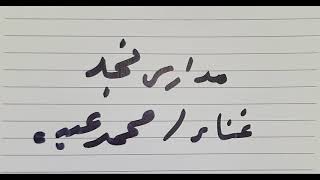 مدارس نجد
غناء / محمد عبده